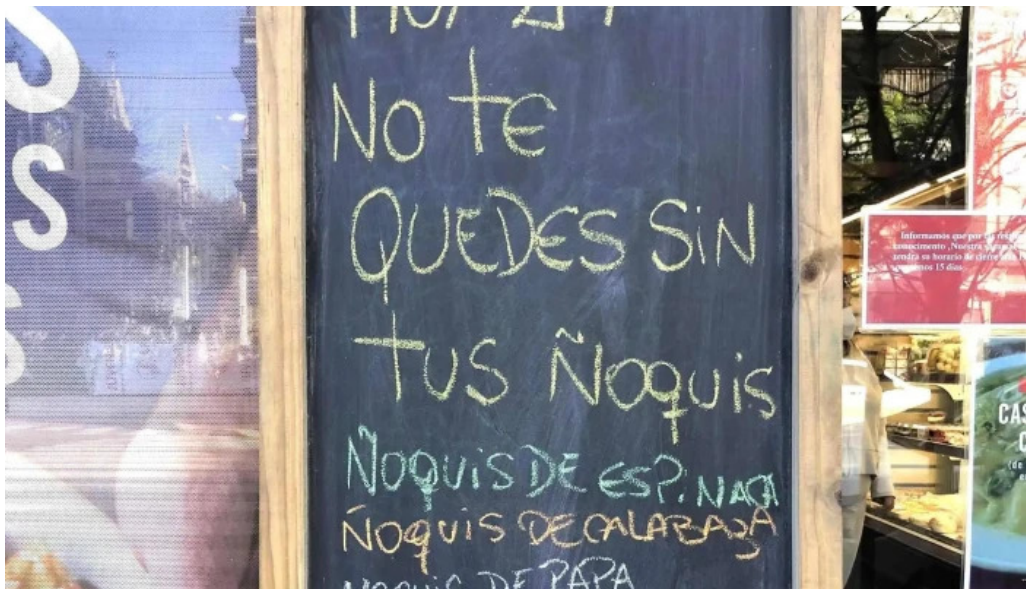 NO TE
QUEDES SIN
TUS ÑOQUIS
ÑOQUIS DE ESPINACA
ÑOQUIS DE CALABAZA
ÑOQUIS DE PAPA
Informamos que por
conocimento ,Nuestra
tendrá su horario de cierre
15 días
CAS